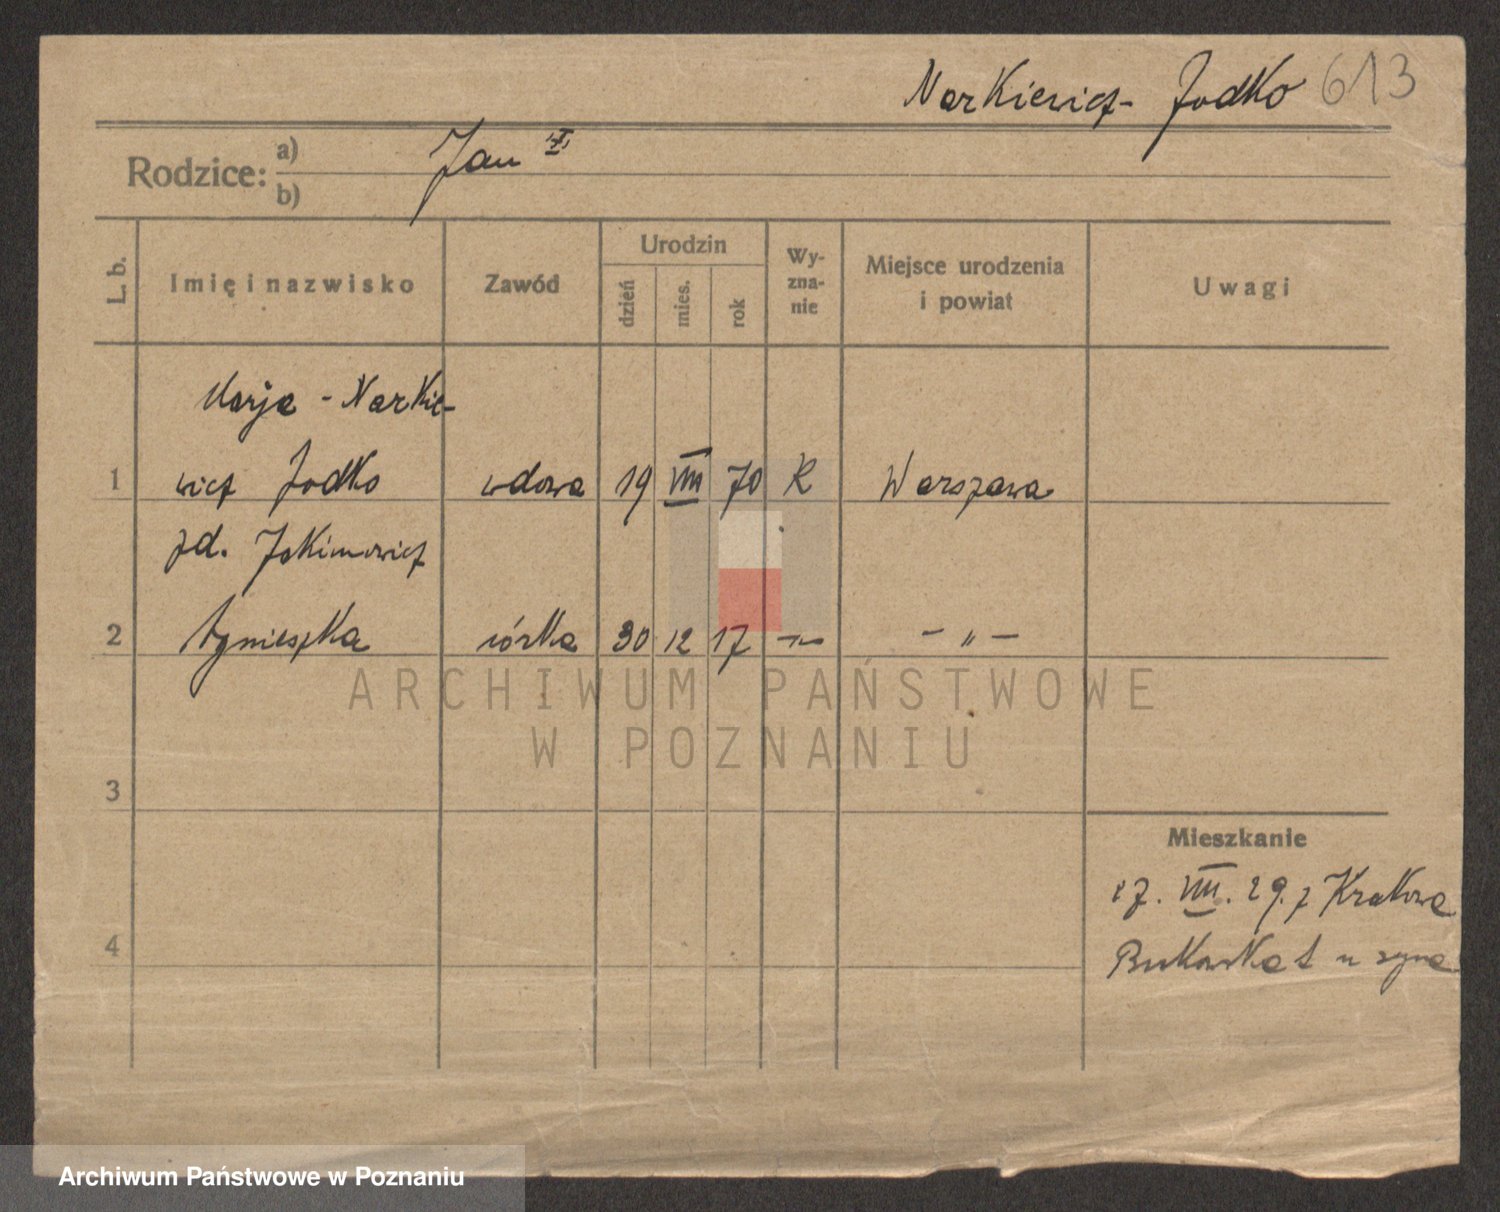 Narkiewicz- Jodko 613
Rodzice: a) Jan
b)
L. b. Imię i nazwisko Zawód Urodzin dzień mies. rok Wy-zna-nie Miejsce urodzenia i powiat Uwagi
Marja - Narkie-
1 wicz Jodko wdowa 19 VIII 70 R Warszawa
zd. Jakimowicz
2 Agnieszka córka 30 12 17 -„- - „ -
ARCHIWUM PAŃSTWOWE
W POZNANIU
3
Mieszkanie
27. VIII. 29. z Krakowa
4
Bukowska u syna
Archiwum Państwowe w Poznaniu